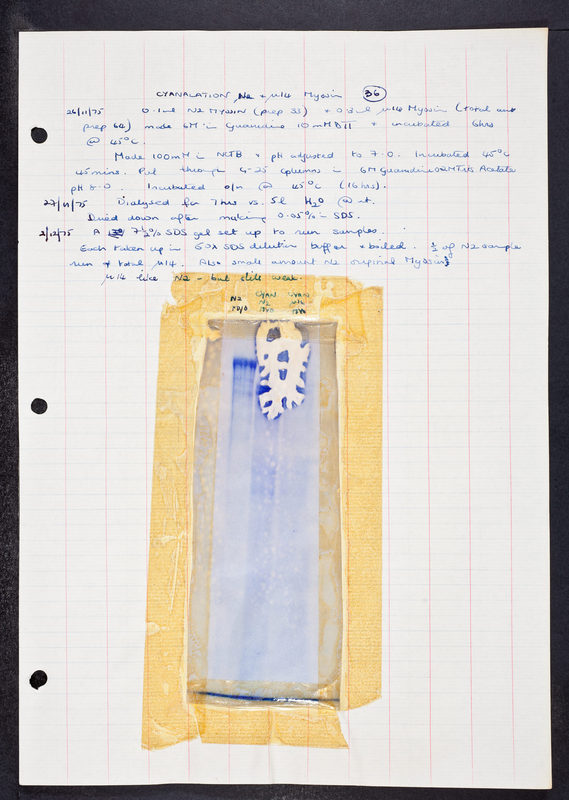 CYANALATION N2 + μ14 Myosin 36
26/11/75 0.1ml N2 Myosin (prep 33) + 0.3ml μ14 Myosin (total
prep 64) made 6M in Guanidine 10mM DTT + incubated 6hrs
@ 45°C.
Made 100mM in NCTB + pH adjusted to 7.0. Incubated 45°C
45mins. Put through G-25 columns in 6M Guanidine 0.2M Tris Acetate
pH 8.0. Incubated o/n @ 45°C (16hrs).
27/11/75 Dialysed for 7hrs vs. 5l H2O @ r.t.
Dried down after making 0.05% in SDS.
2/12/75 A 7½% SDS gel set up to run samples.
Each taken up in SDS dilution buffer + boiled. ½ of N2 sample
run + total μ14. Also small amount N2 original Myosin
μ14 like N2 - but still weak.
N2 CYAN CYAN
N2